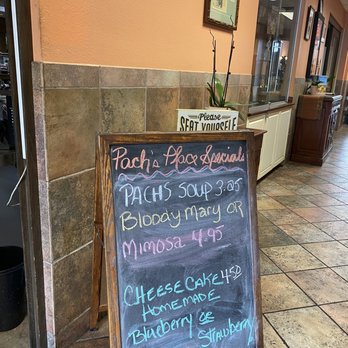 Please
SEAT YOURSELF
Pach's Place Specials
PACH'S SOUP 3.25
Bloody Mary OR
Mimosa 4.95
CHEESE CAKE 4.50
HOMEMADE
Blueberry OR
Strawberry